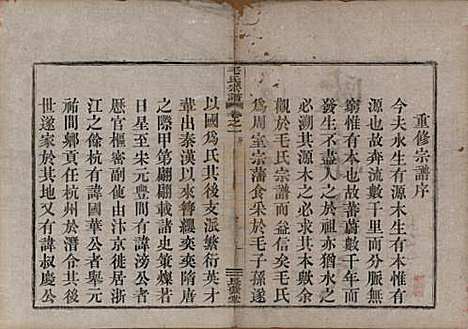 重修宗譜序
今夫水生有源木生有本惟有
源也故奔流數千里而分脈無
窮惟有本也故蕃蔚數千年而
發生不盡人之於祖亦猶水之
必溯其源木之必求其本歟余
觀於毛氏宗譜而益信矣毛氏
爲周室宗藩食采於毛子孫遂
毛氏宗譜 卷之一
以國爲氏其後支派繁衍英才
華出秦漢以來簪纓奕奕隋唐
之際甲第翩翩載諸史策燦若
日星至宋元豐間有諱滂公者
歷官都尉由汴京徙居浙
江之餘杭有諱國華公者舉元
祐間鄉貢任杭州於潛令其後
世遂家於其地又有諱叔慶公